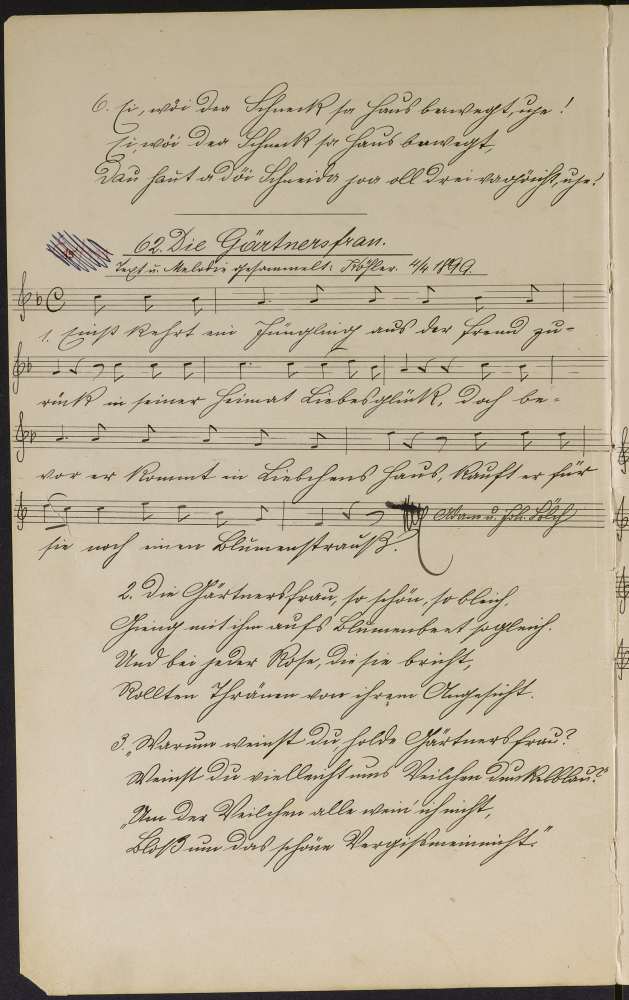 6. Ei, wöi der Schneck sa Haus bewegt, uje!
Ei, wöi der Schneck sa Haus bewegt,
Dau haut a döi Schneida joa oll drei uje!
62. Die Gärtnersfrau.
Text u. Melodie gesammelt: 4/4 1899.
1. Einst kehrt ein Jüngling aus der Fremd zu-
rück in seiner Heimat Liebesglück, doch be-
vor er kommt in Liebchens Haus, kauft er für
sie noch einen Blumenstrauß.
Adam u. Joh.
2. Die Gärtnersfrau, so schön, so bleich,
Gieng mit ihm aufs Blumenbeet sogleich.
Und bei jeder Rose, die sie bricht,
Rollten Thränen von ihrem Angesicht.
3. „Warum weinst du holde Gärtnersfrau?
Weinst du vielleicht ums Veilchen dunkelblau?"
„Um der Veilchen alle wein' ich nicht,
Bloß um das schöne Vergißmeinnicht."